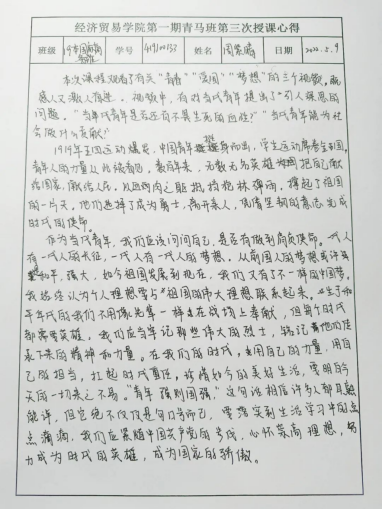 经济贸易学院第一期青马班第三次授课心得
班级 学号 姓名 日期 2022.5.9
本次课程观看了有关“青春”“爱国”“梦想”的三个视频，
感人又激人奋进。视频中，有对当代青年提出了“引人深思的
问题。“当代青年是否还有不畏生死的血性？”“当代青年能为社
会做什么贡献？”
1919年五四运动爆发，中国青年挺身而出，学生运动席卷全国，
青年人的力量从此被看到。数百年来，无数无名英雄把自己献
给国家，献给人民，以血肉之躯抵挡枪林弹雨，撑起了祖国
的一片天，他们选择了成为勇士，离开亲人，凭借坚韧的意志完成
时代的使命。
作为当代青年，我们应该问问自己，是否有做到肩负使命。一代人
有一代人的长征，一代人有一代人的梦想。从前国人的梦想或许是
和平，强大，如今祖国发展到现在，我们又有了不一样的中国梦，
我始终认为个人理想要与祖国的伟大理想联系起来。生于和
平年代的我们不用像先辈一样在战场上奉献，但每个时代
都需要英雄。我们应当牢记那些伟大的烈士，铭记着他们流
传下来的精神和力量。在我们的时代，用自己的力量，用自
己的担当，扛起时代责任，珍惜如今的美好生活，要明白今
天的一切来之不易。“青年强则国强，”这句话相信许多人都耳熟
能详，但它绝不仅仅是句口号而已，要落实到生活学习中的点
点滴滴，我们应紧随中国共产党的步伐，心怀崇高理想，努
力成为时代的英雄，成为国家的骄傲。